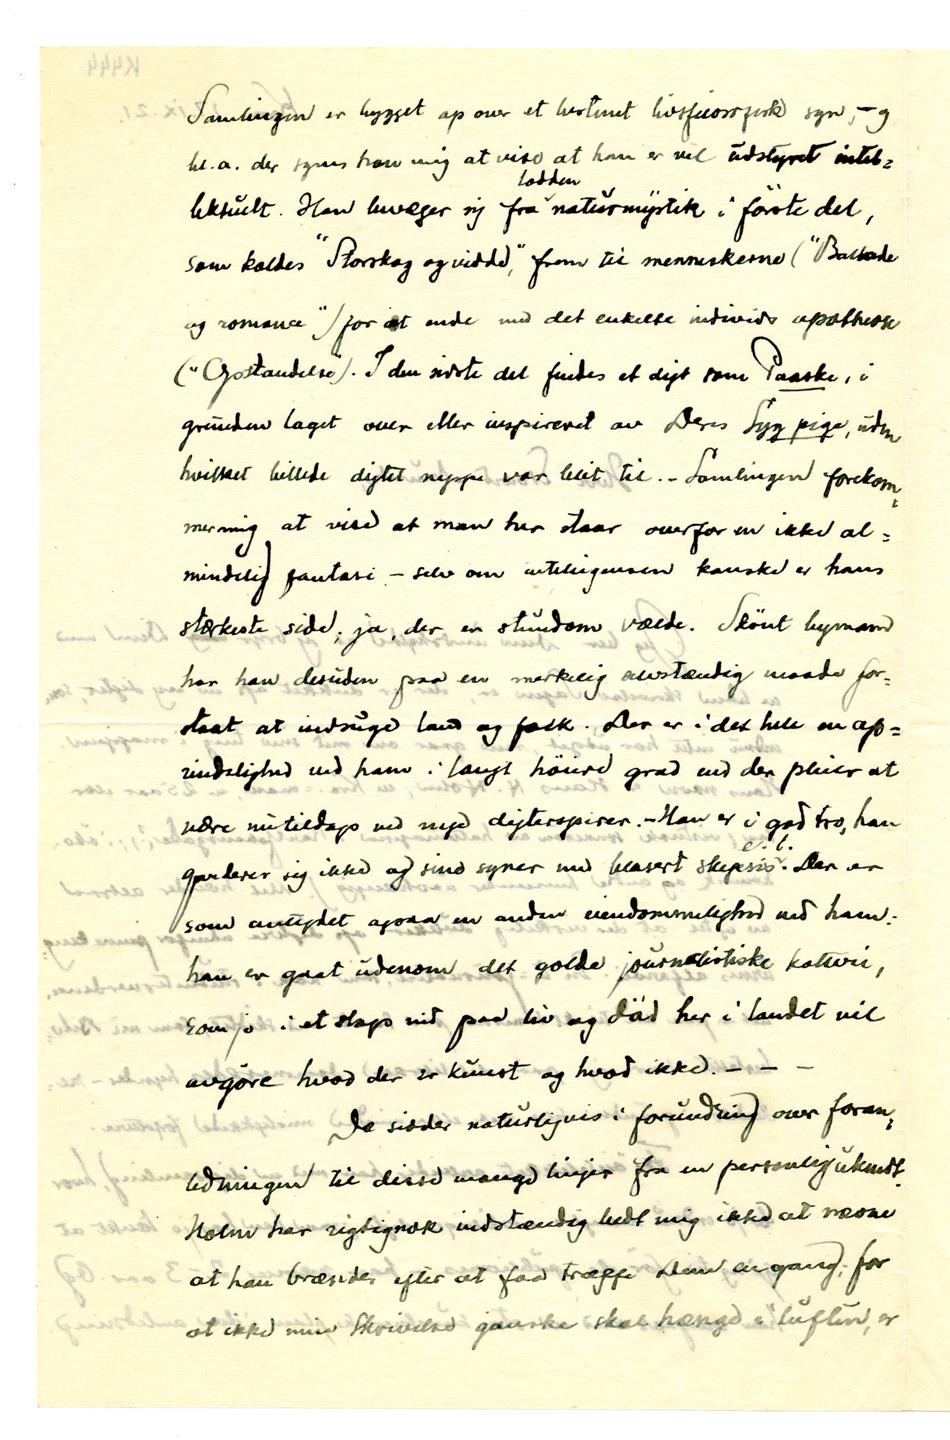 Samlingen er bygget op over et bestemt livsfilosofisk syn, – og
bl.a. der synes han mig at vise at han er vel udstyret intel=
lektuelt. Han bevæger sig fra lodden naturmystik i første del,
som kaldes "Storskog og vidde", frem til menneskerne ("Ballade
og romance") for at ende med det enkelte individs apotheose
("Opstandelse"). I den sidste del findes et digt som Paaske, i
grunden laget over eller inspireret av Deres Syg pige, uden
hvilket billede digtet neppe var blit til. – Samlingen forekom=
mer mig at vise at man her staar overfor en ikke al=
mindelig fantasi – selv om intelligensen kanske er hans
stærkeste side; ja, der er stundom vælde. Skönt bymand
har han desuden paa en merkelig selvstændig maade for=
staat at indsuge land og folk. Der er i det hele en op=
rindelighed ved ham i langt höiere grad end der pleier at
være nutildags ved nye digterspirer. – Han er i god tro, han
garderer sig ikke og sine syner med blasert skepsis e.l. Der er
som antydet ogsaa en anden eiendommelighed ved ham:
han er gaat udenom det golde journalistiske kobbel,
som jo i et slags nid paa liv og död her i landet vil
avgöre hvad der er kunst og hvad ikke. – – –
De sidder naturligvis i forundring over foran=
ledningen til disse mange linjer fra en personlig ukendt.
Holm har rigtignok indstændig bedt mig ikke at nævne
at han brænder efter at faa træffe Dem engang; for
at ikke min skrivelse ganske skal hænge i luften, er
K444